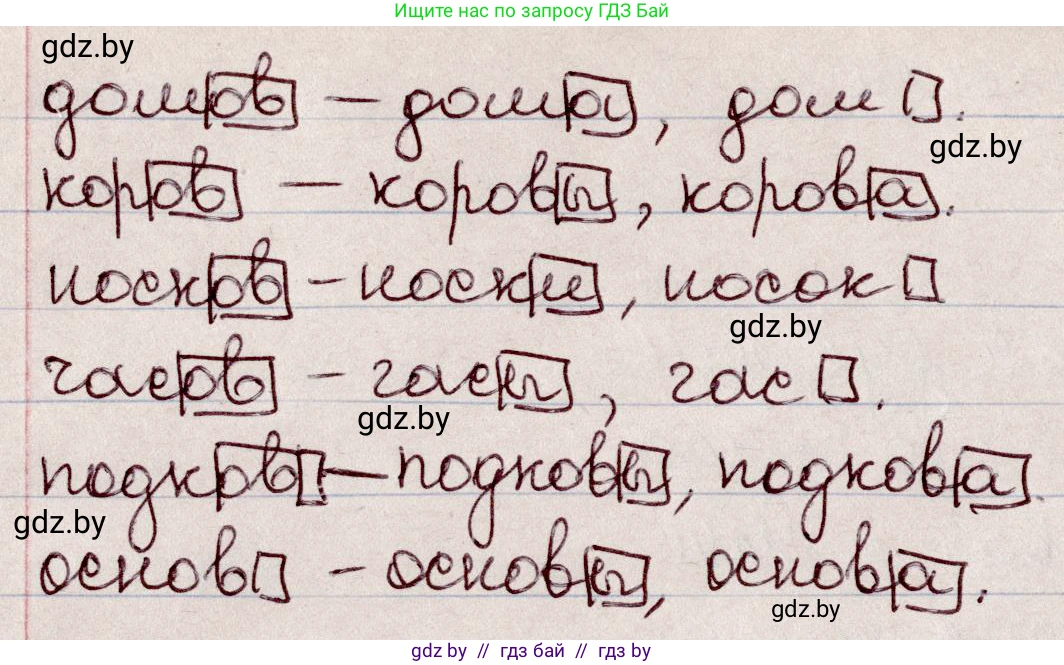 Ищите нас по запросу ГДЗ Бай
gdz.by
домов – дома, дом.
gdz.by
коров – коровы, корова.
носков – носки, носок
gdz.by
часов – часы, час.
gdz.by
подков – подковы, подкова
gdz.by
основ – основы, основа.
gdz.by
gdz by // гдз бай // гдз by